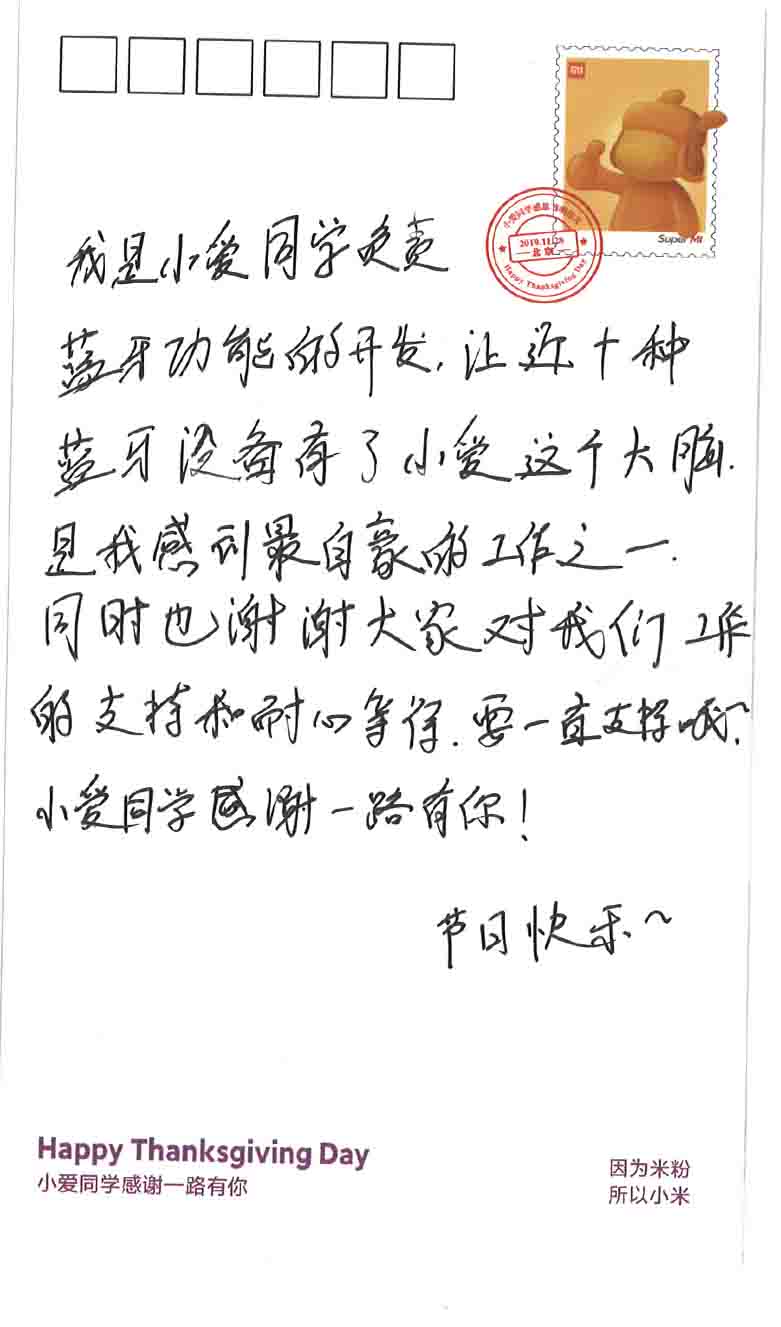 MI
Super MI
小爱同学感恩
2019.11.28
北京
Happy Thanksgiving Day
我是小爱同学负责
蓝牙功能的开发,让近十种
蓝牙设备有了小爱这个大脑.
是我感到最自豪的工作之一.
同时也谢谢大家对我们工作
的支持和耐心等待.要一直支持哦~
小爱同学感谢一路有你!
节日快乐~
Happy Thanksgiving Day
小爱同学感谢一路有你
因为米粉
所以小米